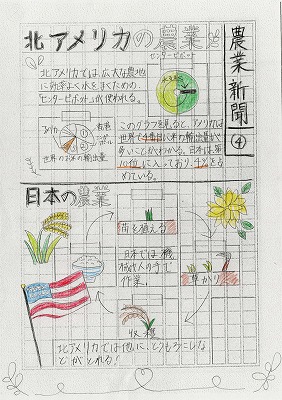 農業新聞
④
北アメリカの農業
センターピボット
北アメリカでは、広大な農地
に効率よく水をまくための、
「センターピボット」が使われる。
アメリカ
世界のお米の輸出量
このグラフを見ると、アメリカは
世界で4番目に米の輸出量が
多いことがわかる。日本は、第
10位に入っており、4%を占
めている。
日本の農業
苗を植える
日本では、機
械や人の手で
作業。
草かり
収穫
北アメリカでは他に、とうもろこしな
どがとれる!